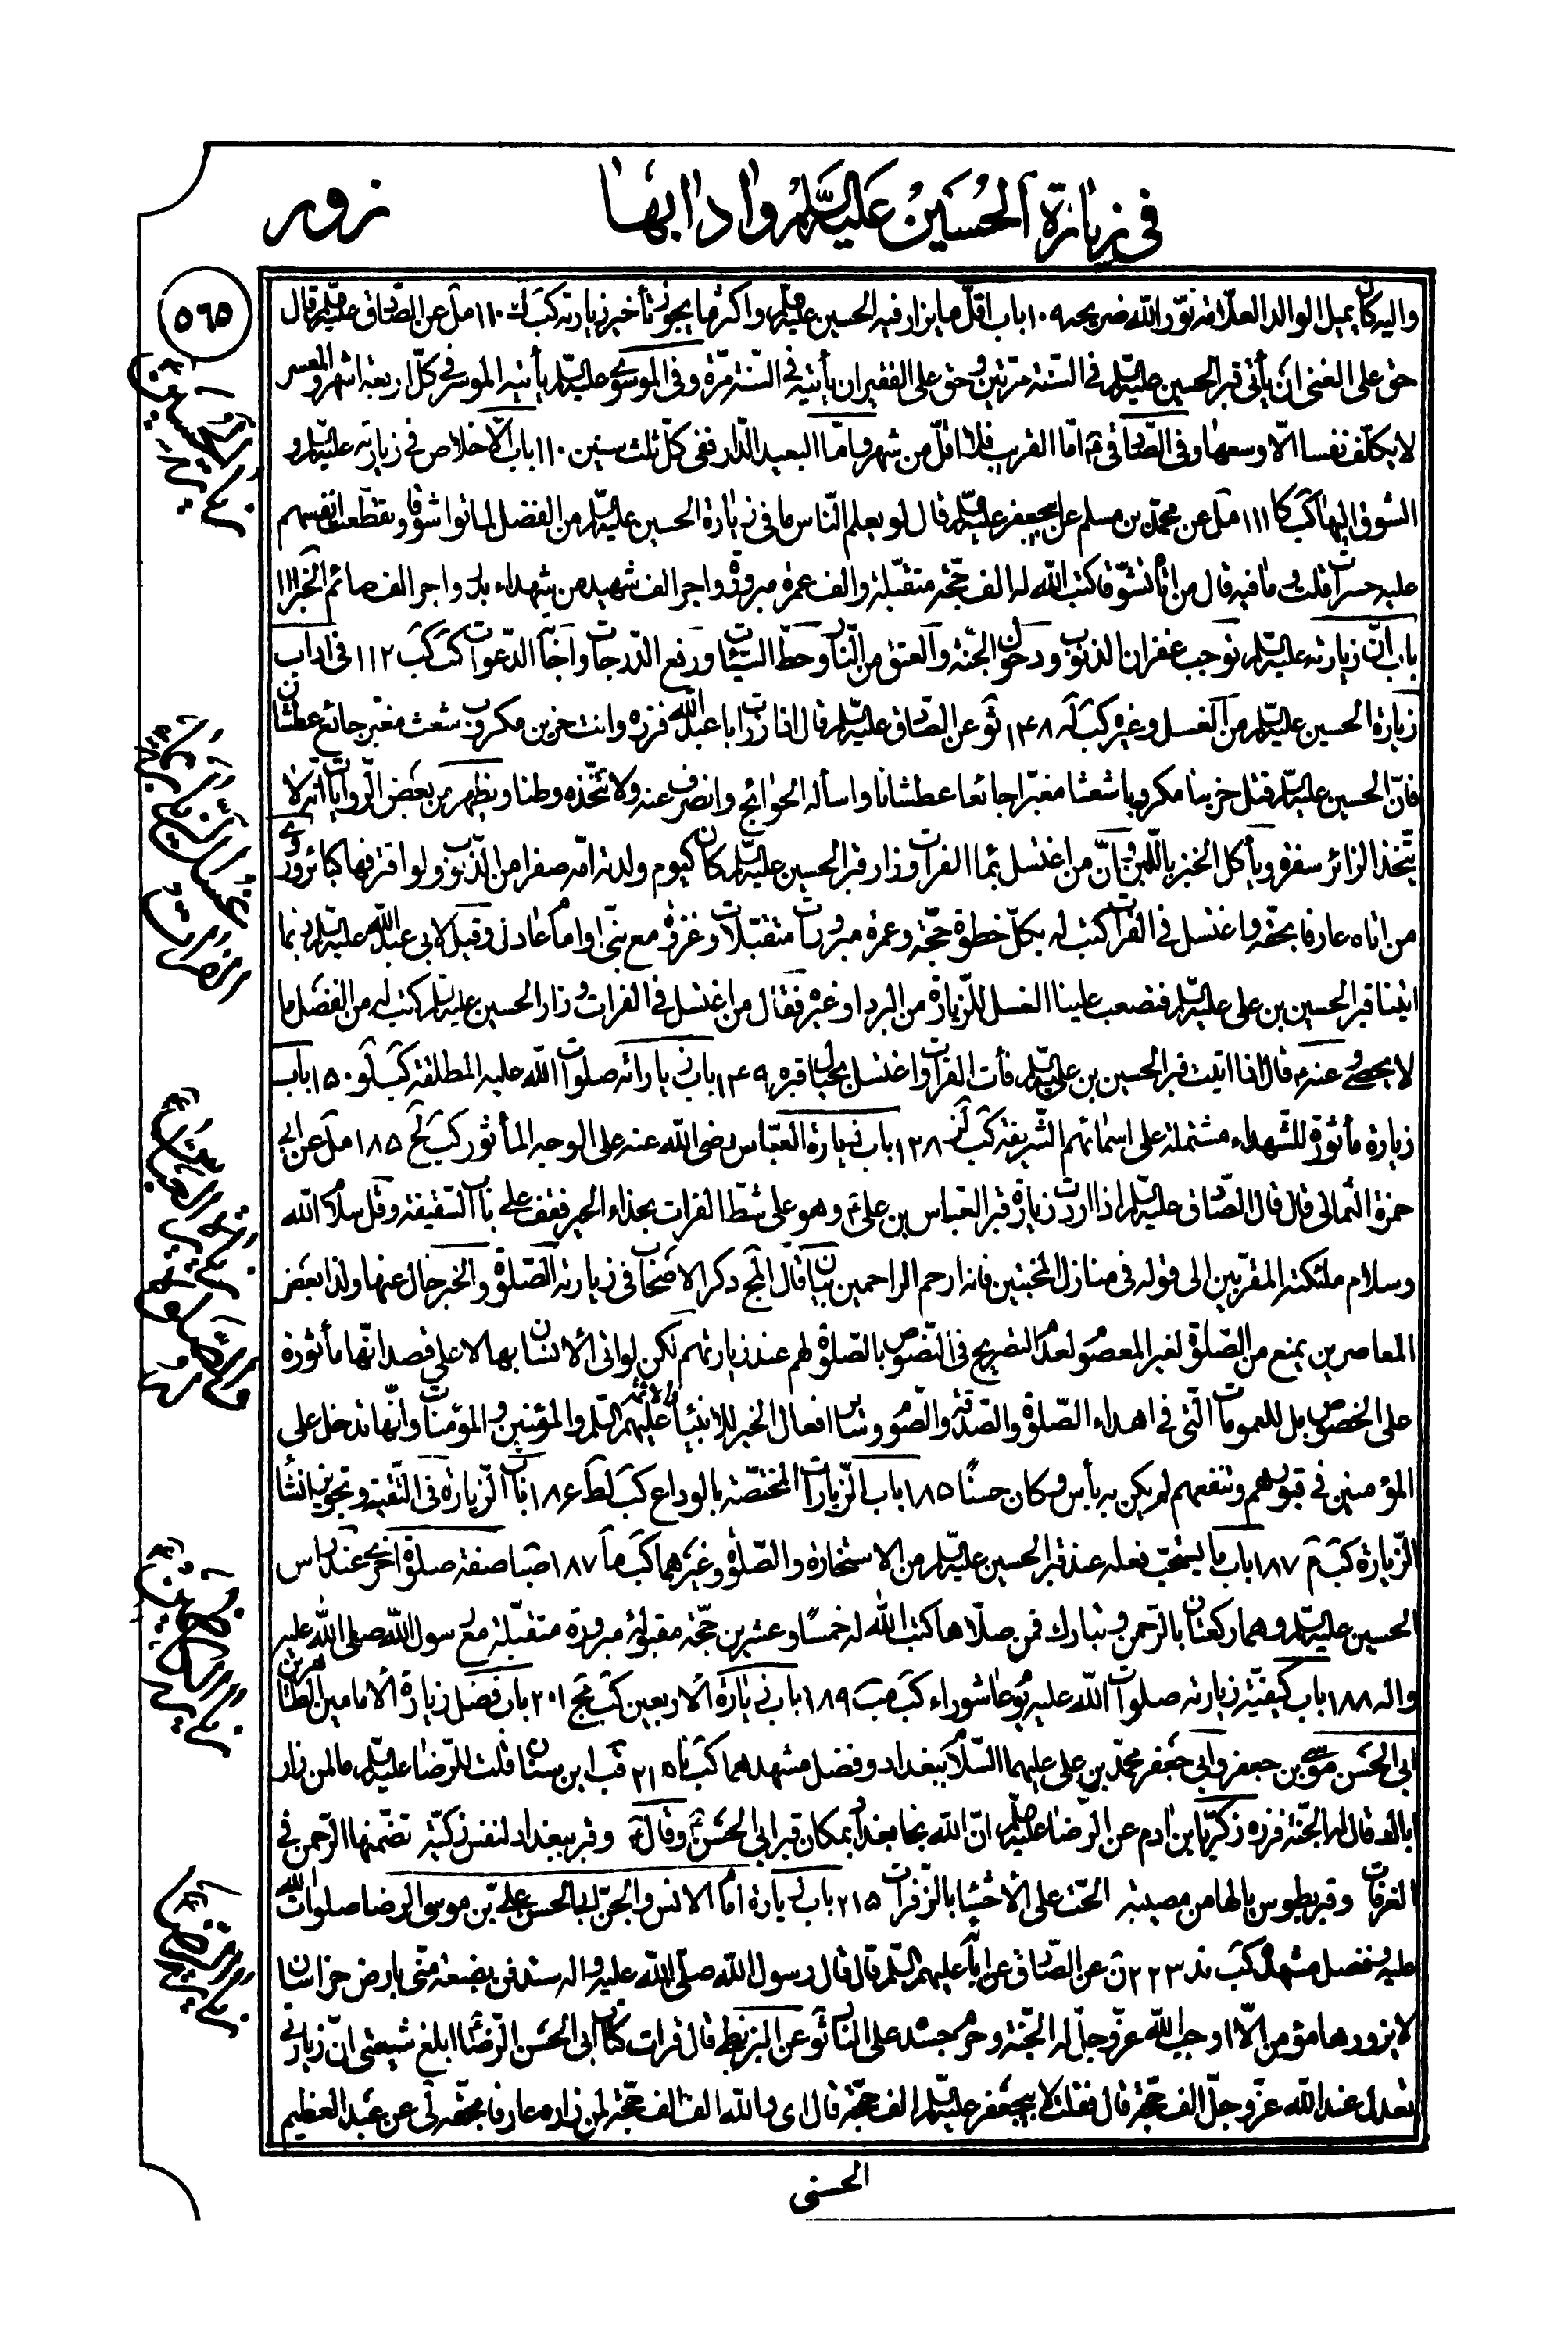 في زيارة الحسين عليه السلم وادابها
زور
٥٦٥
واليه كان يميل الوالد العلامة نور الله ضريحه ١٠٩ باب اقل ما يزار فيه الحسين عليه السلم واكثر ما يجوز تأخير زيارته كب ك ١١٠ مل عن الصادق عليه السلم قال
حق على الغني ان يأتي قبر الحسين عليه السلم في السنة مرتين وحق على الفقير ان يأتيه في السنة مرة وفي الموسى عليه السلم يأتيه الموسر في كل اربعة اشهر والمعسر
لا يكلف نفسا الا وسعها وفي الصادقي ع اما القريب فلا اقل من شهر واما البعيد الدار ففي كل ثلث سنين ١١٠ باب الاخلاص في زيارته عليه السلم و
الشوق اليها كب كا ١١١ مل عن محمد بن مسلم عن ابي جعفر عليه السلم قال لو يعلم الناس ما في زيارة الحسين عليه السلم من الفضل لماتوا شوقا وتقطعت انفسهم
عليه حسرات قلت وما فيه قال من اتاه تشوقا كتب الله له الف حجة متقبلة والف عمرة مبرورة واجر الف شهيد من شهداء بدر واجر الف صائم الخبر ١١١
باب ان زيارته عليه السلم توجب غفران الذنوب ودخول الجنة والعتق من النار وحط السيئات ورفع الدرجات واجابة الدعوات كب كب ١١٢ في اداب
زيارة الحسين عليه السلم من الغسل وغيره كب له ١٤٨ ثو عن الصادق عليه السلم قال اذا زرت ابا عبد الله فزره وانت حزين مكروب شعث مغبر جائع عطشان
فان الحسين عليه السلم قتل حزينا مكروبا شعثا مغبرا جائعا عطشانا واسأله الحوائج وانصرف عنه ولا تتخذه وطنا ويظهر من بعض الروايات انه لا
يتخذ الزائر سفرة ويأكل الخبز باللبن وان من اغتسل بماء الفرات وزار قبر الحسين عليه السلم كان كيوم ولدته امه صفرا من الذنوب ولو اقترفها كبائر وروي
من اتاه عارفا بحقه واغتسل في الفرات كتب له بكل خطوة حجة وعمرة مبرورات متقبلات وغزوة مع نبي او امام عادل وقيل لابي عبد الله عليه السلم ربما
اتينا قبر الحسين بن علي عليه السلم فتصعب علينا الغسل للزيارة من البرد او غيره فقال من اغتسل في الفرات وزار الحسين عليه السلم كتب له من الفضل ما
لا يحصى وعنه ع قال اذا اتيت قبر الحسين بن علي عليه السلم فأت الفرات واغتسل بحيال قبره ١٤٩ باب زياراته صلوات الله عليه المطلقة كب لو ١٥٠ باب
زيارة مأثورة للشهداء مشتملة على اسمائهم الشريفة كب لز ١٢٨ باب زيارة العباس رضى الله عنه على الوجه المأثور كب لح ١٨٥ مل عن ابي
حمزة الثمالي قال قال الصادق عليه السلم اذا اردت زيارة قبر العباس بن علي ع وهو على شط الفرات بحذاء الحير فقف على باب السقيفة وقل سلام الله
وسلام ملئكته المقربين الى قوله في منازل المخبتين فانه ارحم الراحمين بيان قال المج ذكر الاصحاب في زيارته الصلوة والخبر خال عنها ولذا بعض
المعاصرين يمنع من الصلوة لغير المعصوم لعدم التصريح في النصوص بالصلوة لهم عند زيارتهم لكن لو اتى الانسان بها لا على قصد انها مأثورة
على الخصوص بل للعمومات التى في اهداء الصلوة والصدقة والصوم وسائر افعال الخير للانبياء والائمة عليهم السلم والمؤمنين والمؤمنات وانها تدخل على
المؤمنين في قبورهم وتنفعهم لم يكن به بأس وكان حسنا ١٨٥ باب الزيارات المختصة بالوداع كب لط ١٨٦ باب الزيارة في التقية وتجويز انشاء
الزيارة كب م ١٨٧ باب ما يستحب فعله عند قبر الحسين عليه السلم من الاستخارة والصلوة وغيرهما كب ما ١٨٧ صبا صفة صلوة اخرى عند راس
الحسين عليه السلم وهما ركعتان بالرحمن وتبارك فمن صلاها كتب الله له خمسا وعشرين حجة مقبولة مبرورة متقبلة مع رسول الله صلى الله عليه
واله ١٨٨ باب كيفية زيارته صلوات الله عليه يوم عاشوراء كب مب ١٨٩ باب زيارة الاربعين كب مج ٢٠١ باب فضل زيارة الامامين الطاهرين
ابي الحسن موسى بن جعفر وابي جعفر محمد بن علي عليهما السلام ببغداد وفضل مشهدهما كب نا ٢١٥ قب ابن سنان قلت للرضا عليه السلم ما لمن زار
اباك قال له الجنة فزره زكريا بن ادم عن الرضا عليه السلم ان الله نجا بغداد بمكان قبر ابي الحسن ع وقال ع وقبر ببغداد لنفس زكية تضمنها الرحمن في
الغرفات وقبر بطوس يا لها من مصيبة الحت على الاحشا بالزفرات ٢١٥ باب زيارة امام الانس والجن ابي الحسن علي بن موسى الرضا صلوات الله
عليه وفضل مشهده كب ند ٢٢٣ ن عن الصادق عن ابائه عليهم السلم قال قال رسول الله صلى الله عليه واله ستدفن بضعة منى بارض خراسان
لا يزورها مؤمن الا اوجب الله عز وجل له الجنة وحرم جسده على النار ثو عن البزنطي قال قرات كتاب ابى الحسن الرضا ابلغ شيعتى ان زيارتى
تعدل عند الله عز وجل الف حجة قال فقلت لابي جعفر عليه السلم الف حجة قال اى والله الف الف حجة لمن زاره عارفا بحقه لى عن عبد العظيم
الحسنى